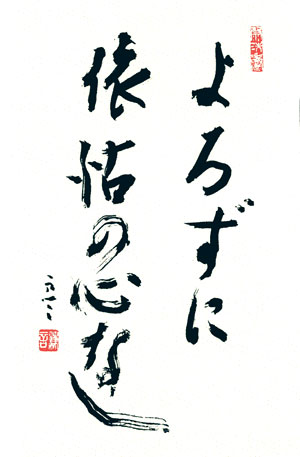 よろずに
依怙の心なし